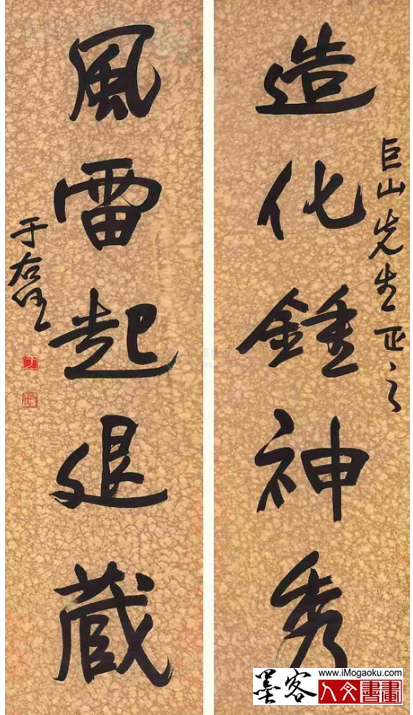 造化鍾神秀
巨山先生正之
風雷起退藏
于右任
墨客
www.iMogaoku.com
人文書畫